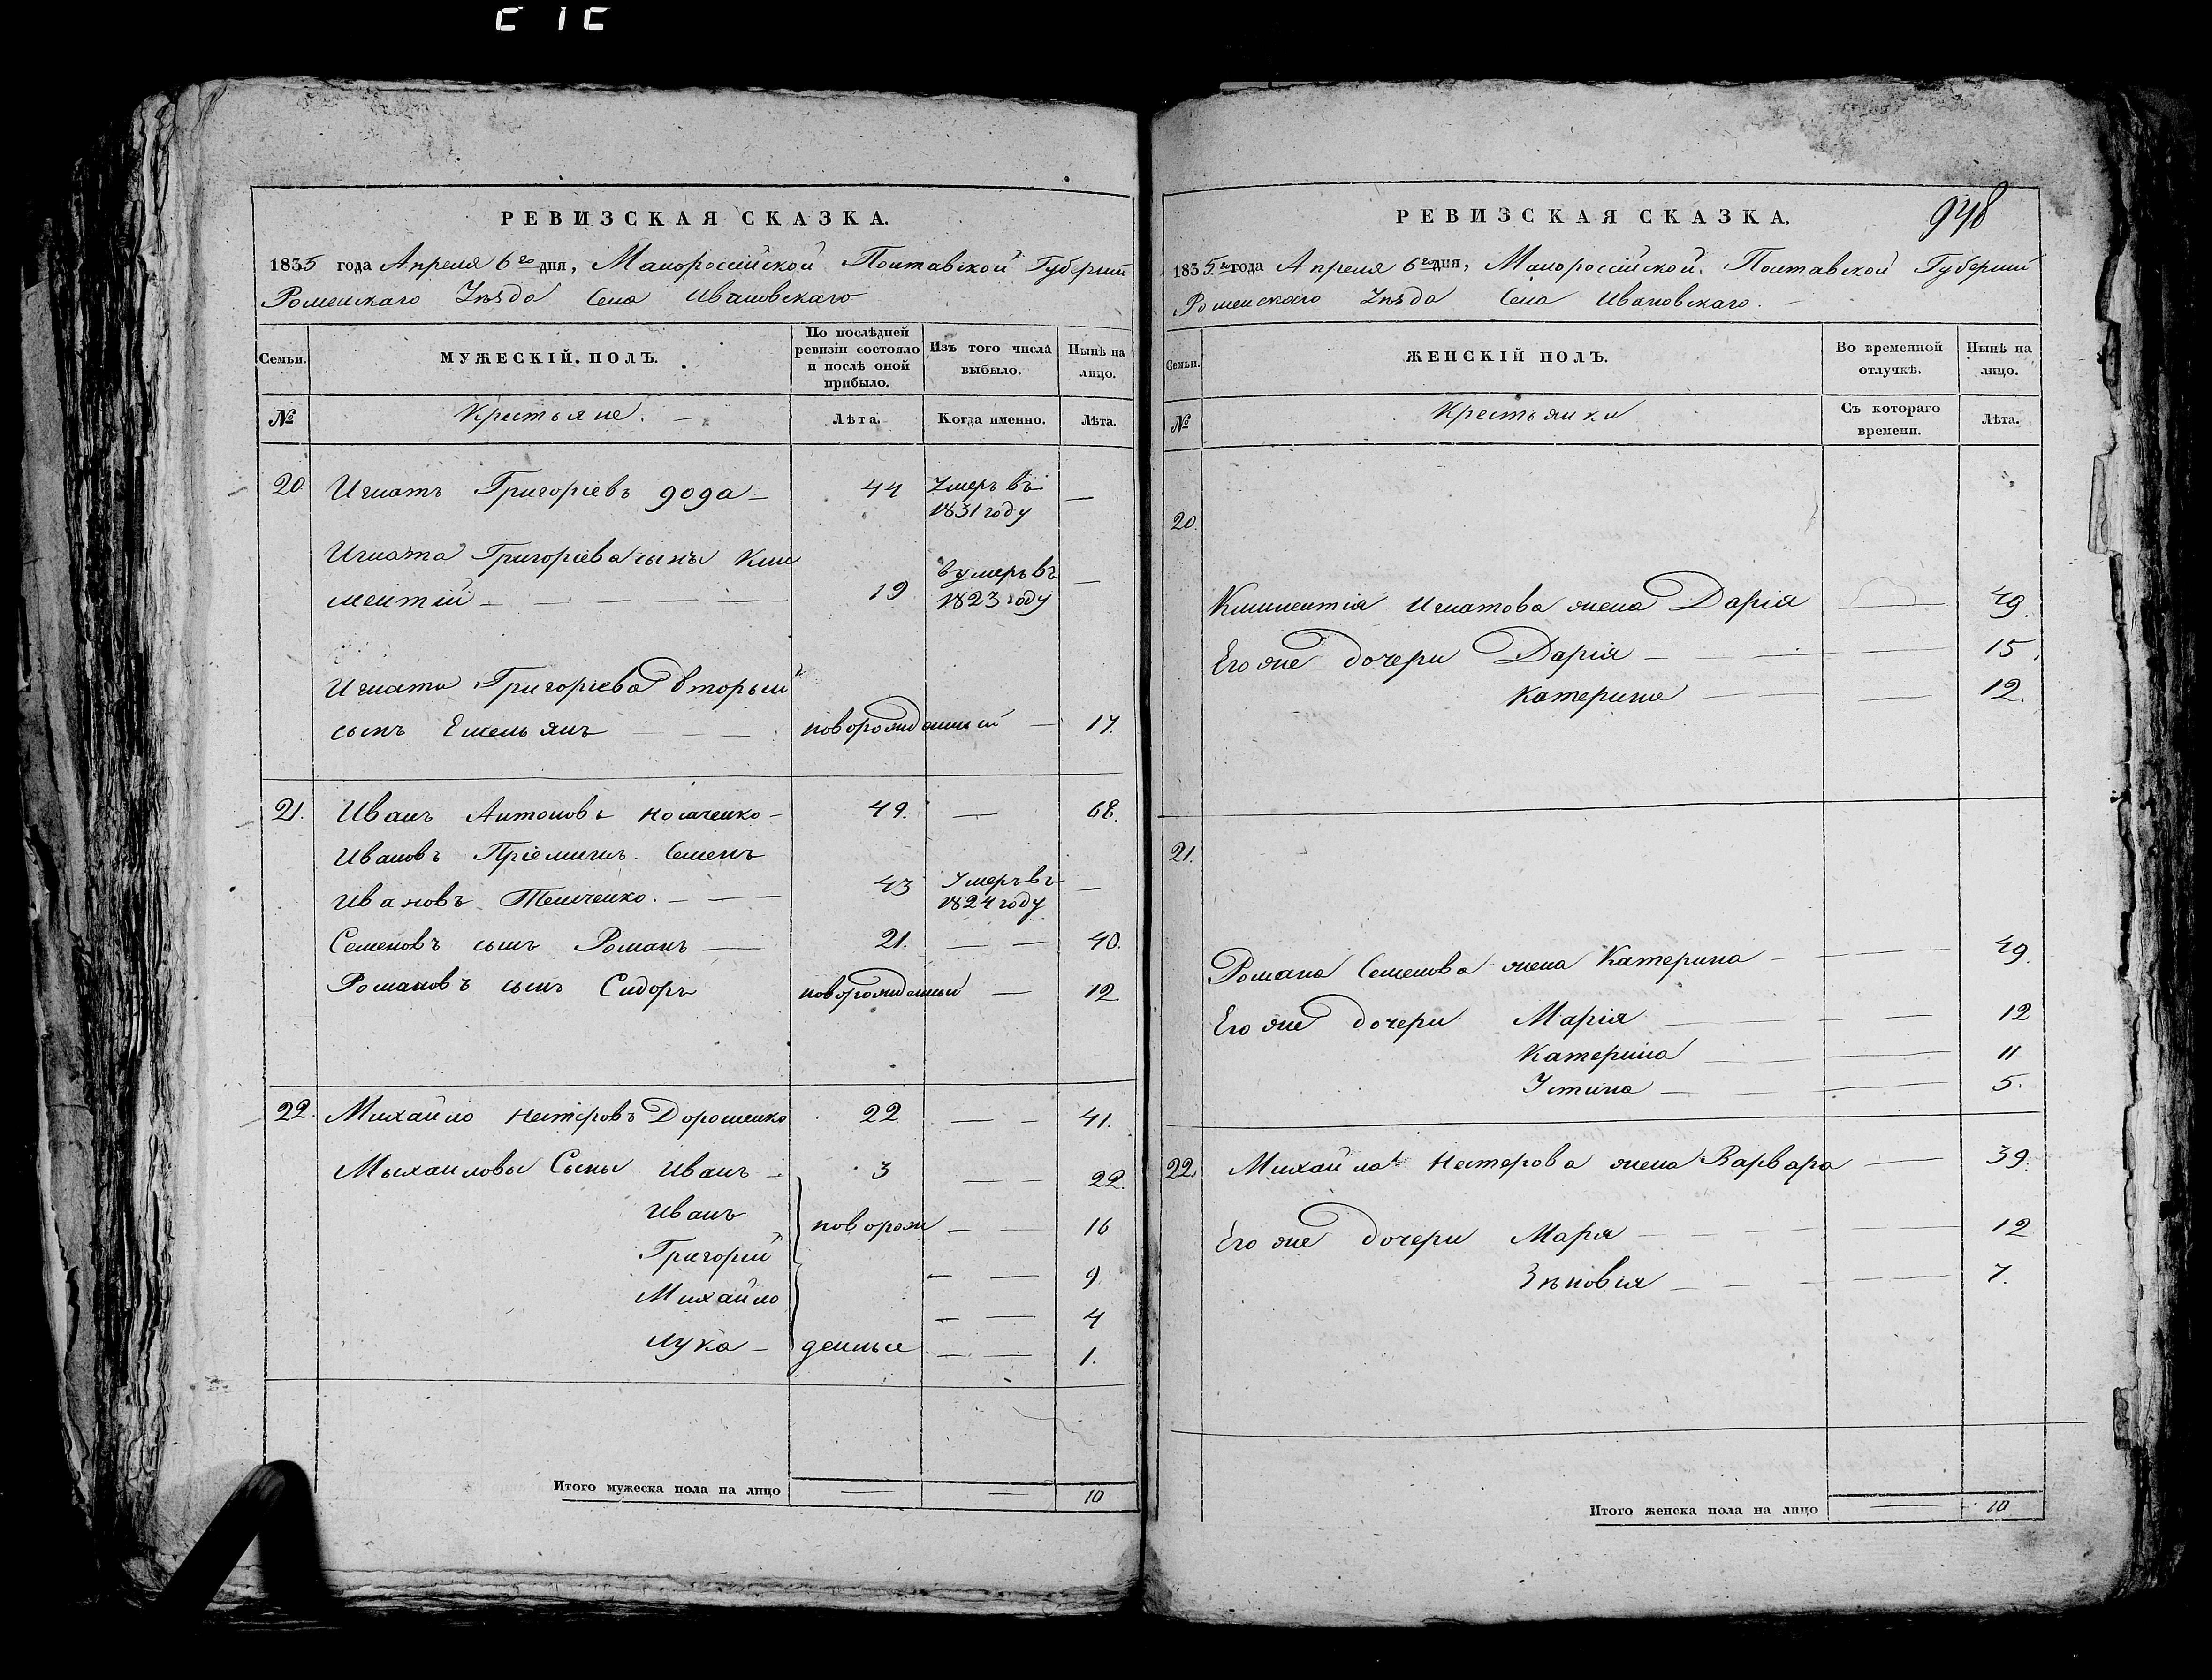 РЕВИЗСКАЯ СКАЗКА.
1835 года Апреля 6го дня, Малороссійской Полтавской Губерніи
Роменскаго Уѣзда Села Ивановскаго
Семьи.
МУЖЕСКІЙ. ПОЛЪ.
По послѣдней ревизіи состояло и послѣ оной прибыло.
Изъ того числа выбыло.
Нынѣ на лицо.
№
Крестьяне.
Лѣта.
Когда именно.
Лѣта.
20 Игнатъ Григоріевъ дода — 44 Умеръ въ 1831 году —
Игната Григоріева сынъ Кли
ментій — 19 вумеръ въ 1823 году —
Игната Григоріева вторый
сынъ Емельянъ — новорожденный — 17.
21. Иванъ Антоновъ Носаченко — 49. — 68.
Ивановъ Пріемышъ. Семенъ
Ивановъ Темченко. — 43 Умеръ въ 1824 году —
Семеновъ сынъ Романъ — 21. — 40.
Романовъ сынъ Сидоръ новорожденный — 12
22. Михайло Нестеровъ Дорошенко 22 — 41.
Мыхаиловы Сыны Иванъ — 3 — 22.
Иванъ новорож — 16
Григорій — 9
Михайло — 4
Лука — денные — 1.
Итого мужеска пола на лицо — — 10
948
РЕВИЗСКАЯ СКАЗКА.
1835го года Апреля 6го дня, Малороссійской. Полтавской Губерніи
Роменскаго Уѣзда Села Ивановскаго.
Семьи.
ЖЕНСКІЙ ПОЛЪ.
Во временной отлучкѣ.
Нынѣ на лицо.
№
Крестьянки
Съ котораго времени.
Лѣта.
20.
Климентія Игнатова жена Дарія — 49.
Его же дочери Дарія — 15.
Катерина — 12.
21.
Романа Семенова жена Катерина — 49.
Его же дочери Марія — 12
Катерина — 11
Устина — 5.
22. Михайла Нестерова жена Варвара — 39.
Его же дочери Марія — 12
Зѣновія — 7.
Итого женска пола на лицо — 10